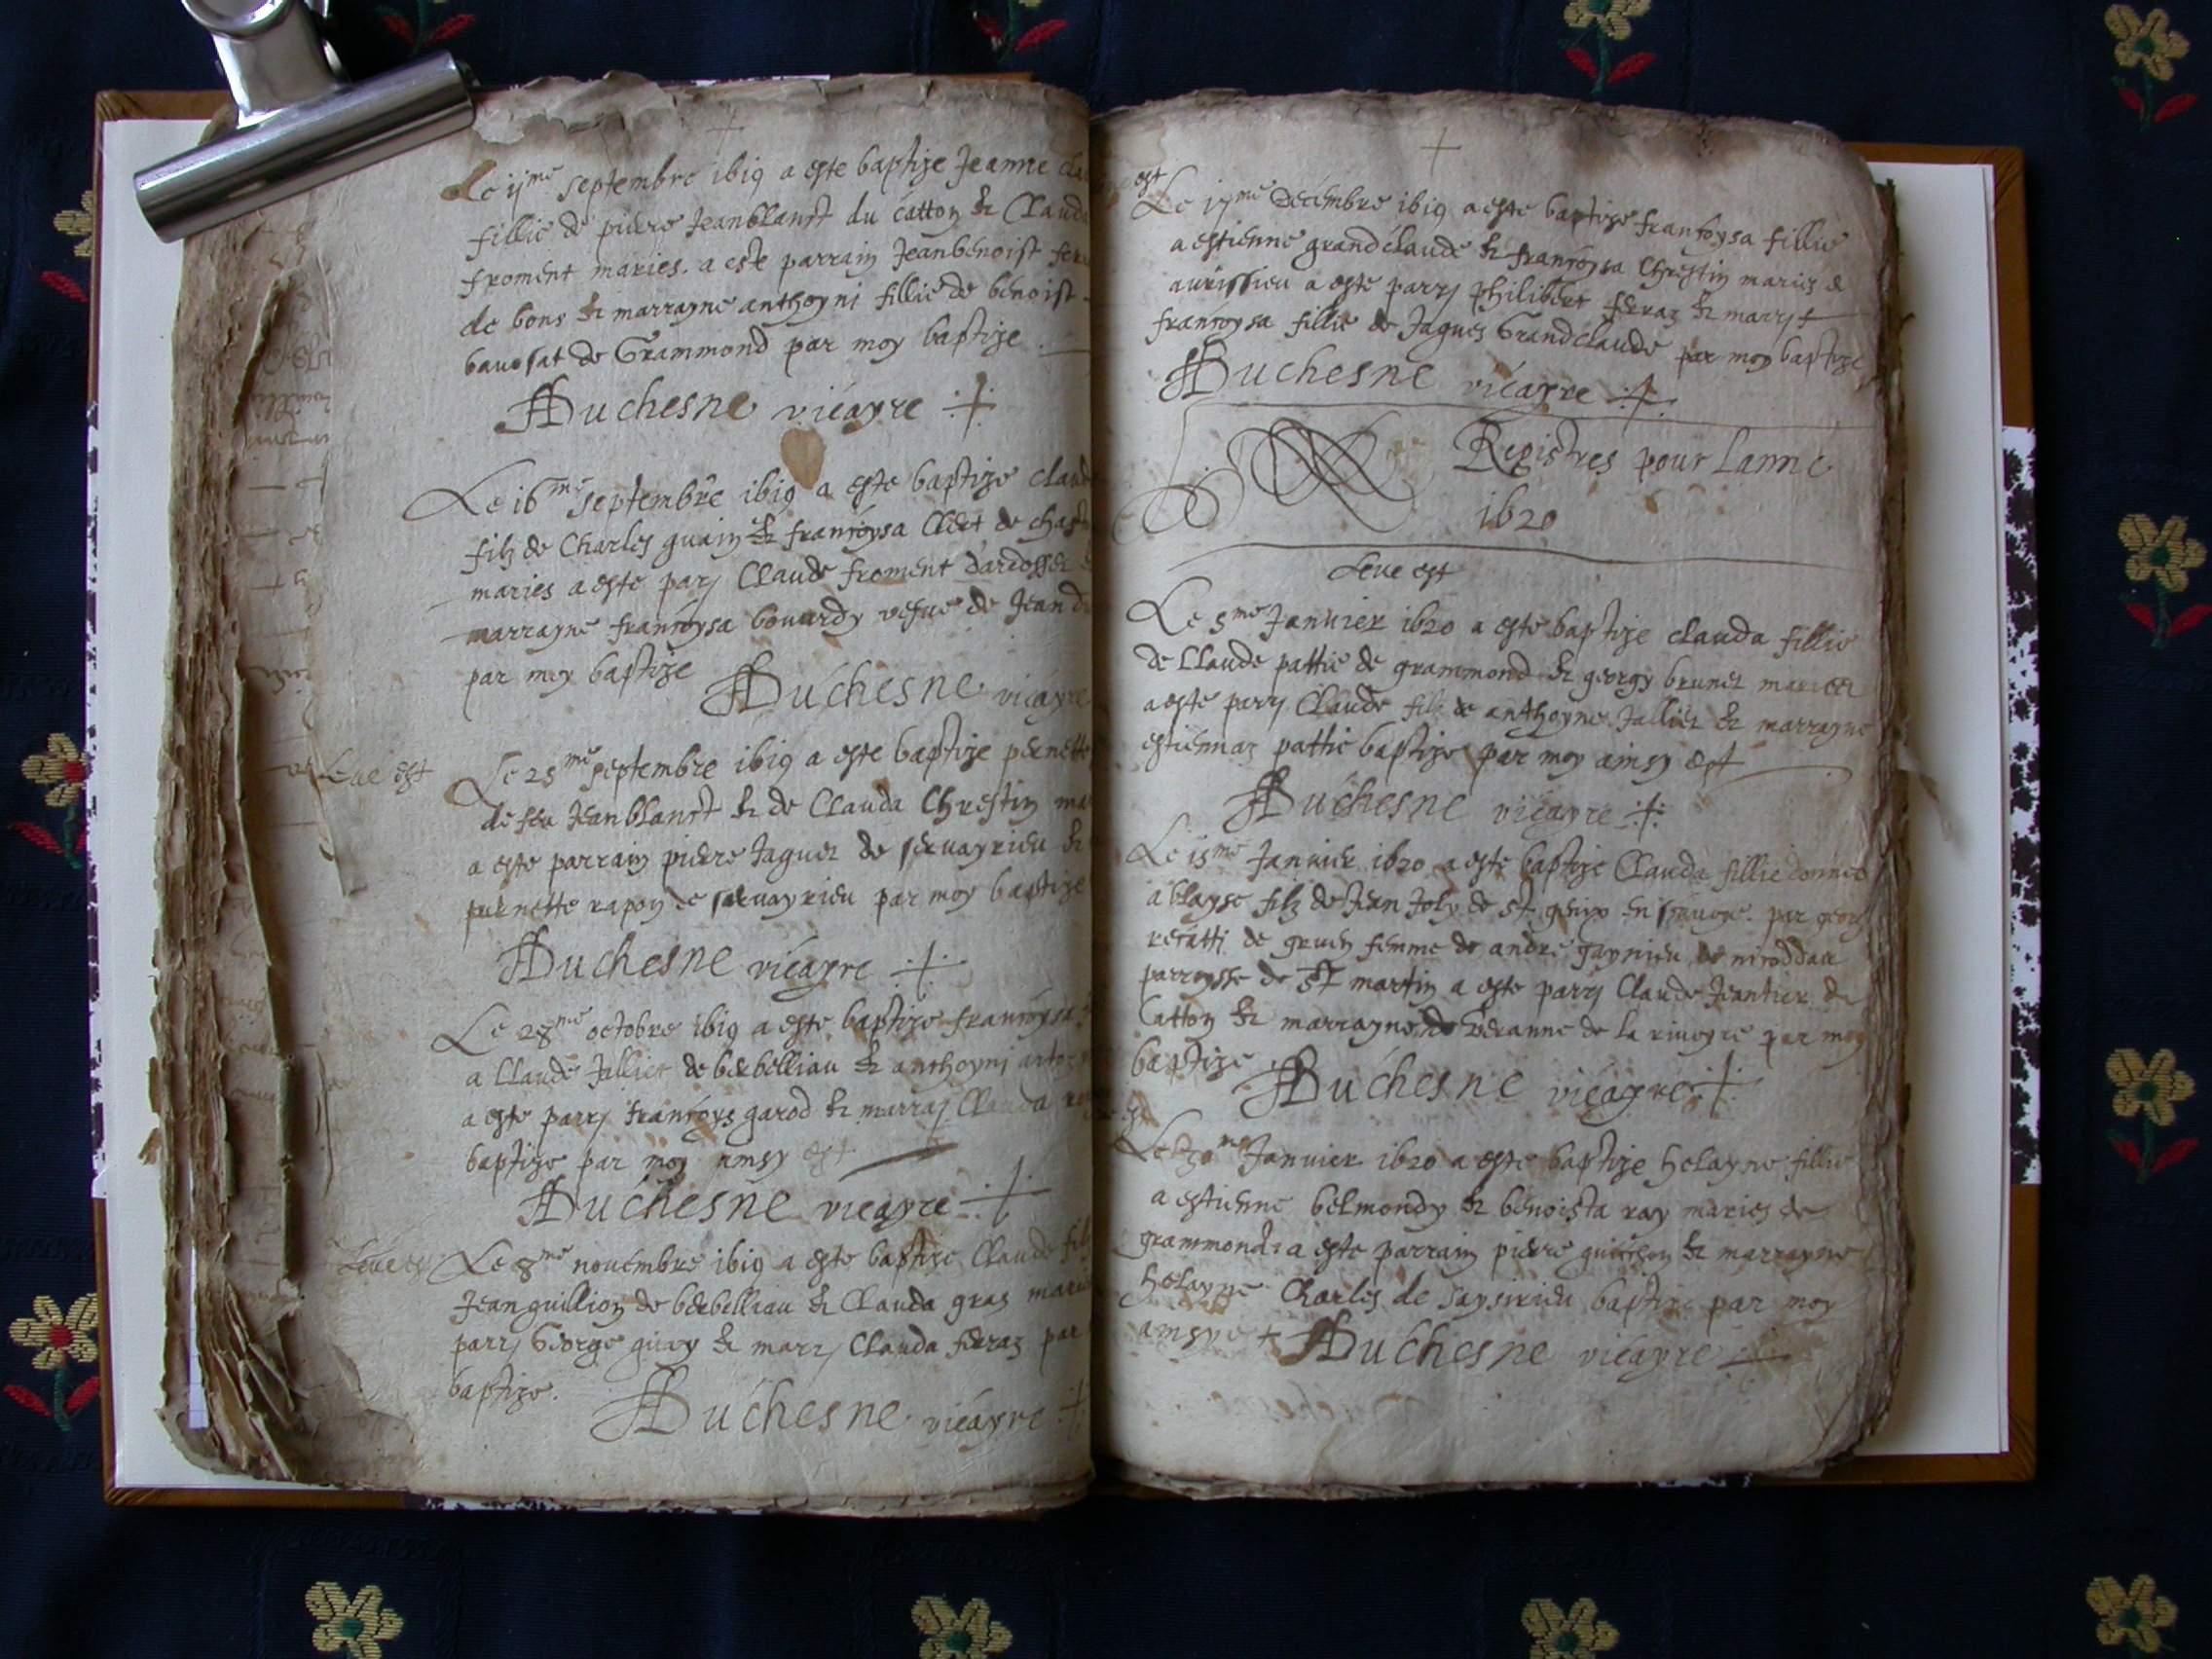 Le ij me septembre 1619 a este baptize Jeanne
fillie de pierre Jeanblanct du catton & Clauda
froment maries. a este parrain Jeanbenoist
de bons & marrayne anthoyni fillie de benoist
bauosat de Grammond par moy baptize
Duchesne vicayre
Le 16 me septembre 1619 a este baptize claude
filz de Charles guain & françoysa Clert de
maries a este parj Claude froment
marrayne françoysa bouardy vefue de Jean
par moy baptize Duchesne vicayre
Leue est
Le 25 me septembre 1619 a este baptize pernette
de feu Jeanblanct & de Clauda Chrestin
a este parrain pierre Jaguet de seruayrieu &
pernette rapon de seruayrieu par moy baptize
Duchesne vicayre
Le 28 me octobre 1619 a este baptize françoysa
a Claude Jallier de berbelliau & anthoynj
a este parrj françoys garod & marraj Clauda
baptize par moy amsy est
Duchesne vicayre
Leue est
Le 8 me nouembre 1619 a este baptize Claude filz
Jean guillion de berbelliau & Clauda gras
parrj George guay & marrj Clauda ferraz par
baptize.
Duchesne vicayre
est
Le 15 me decembre 1619 a este baptize françoysa fillie
a estienne grandclaude & françoysa Chrestin maries
aurissieu a este parrj philibert ferraz & marrj
françoysa fillie de Jagues Grandclaude par moy baptize
Duchesne vicayre
Registres pour Lanne
1620
Leue est
Le 5 me Januier 1620 a este baptize clauda fillie
de Claude pattie de grammond & georgy brunet maries
a este parrj Claude filz de anthoyne Jallier & marrayne
estiennaz pattie baptize par moy ainsy est
Duchesne vicayre
Le 15 me Januier 1620 a este baptize Clauda fillie donnee
a blayse filz de Jean Joly de St genix en sauoye. par
recatti de gruen femme de andre gaynieu de
parroysse de St martin a este parrj Claude Jeantier de
Catton & marrayne de la riuoyre par moy
baptize
Duchesne vicayre
est
Le 30 me Januier 1620 a este baptize helayne fillie
a estienne belmondy & benoista ray maries de
grammond a este parrain pierre & marrayne
helayne Charles de baptize par moy
amsy Duchesne vicayre